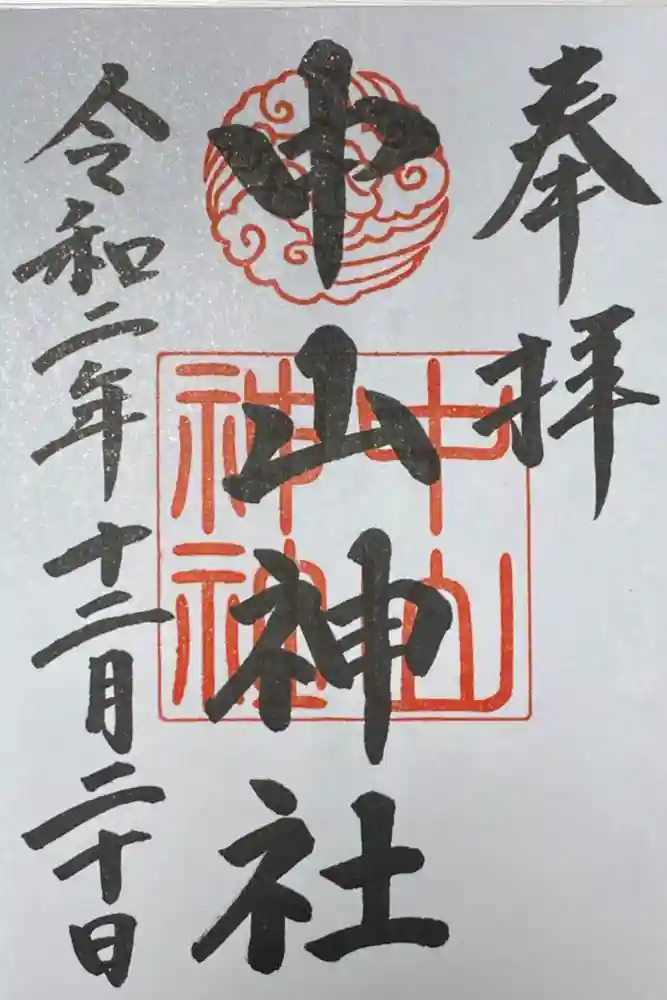 奉拝
中山神社
中山
神社
令和二年十二月二十日